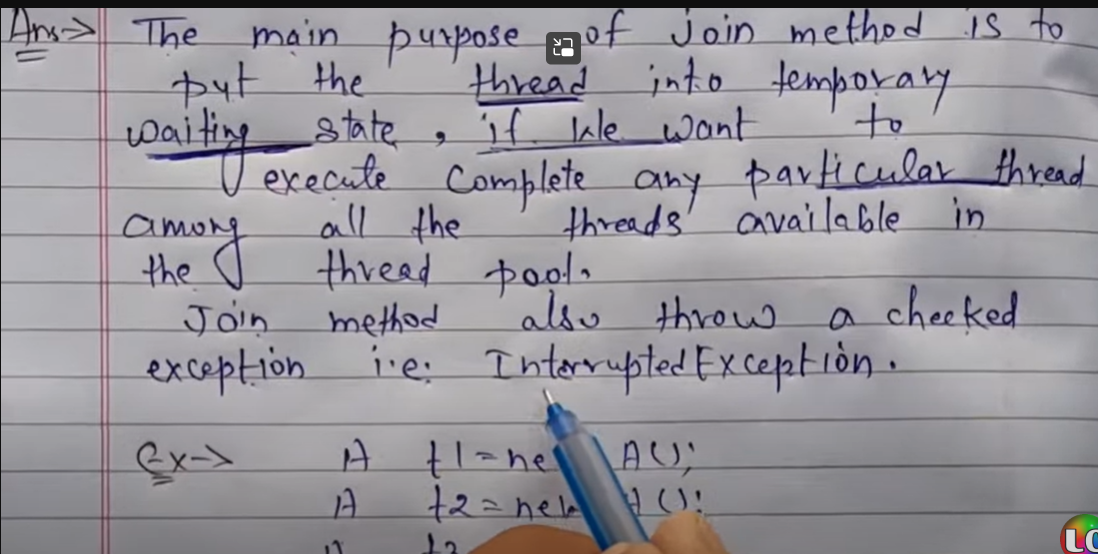 Ans→ The main purpose of Join method is to
put the thread into temporary
waiting state, if We want to
execute Complete any particular thread
among all the threads available in
the thread pool.
Join method also throw a checked
exception i.e: InterruptedException.
Ex→ A t1 = ne A();
A t2 = new A();
t3
LO